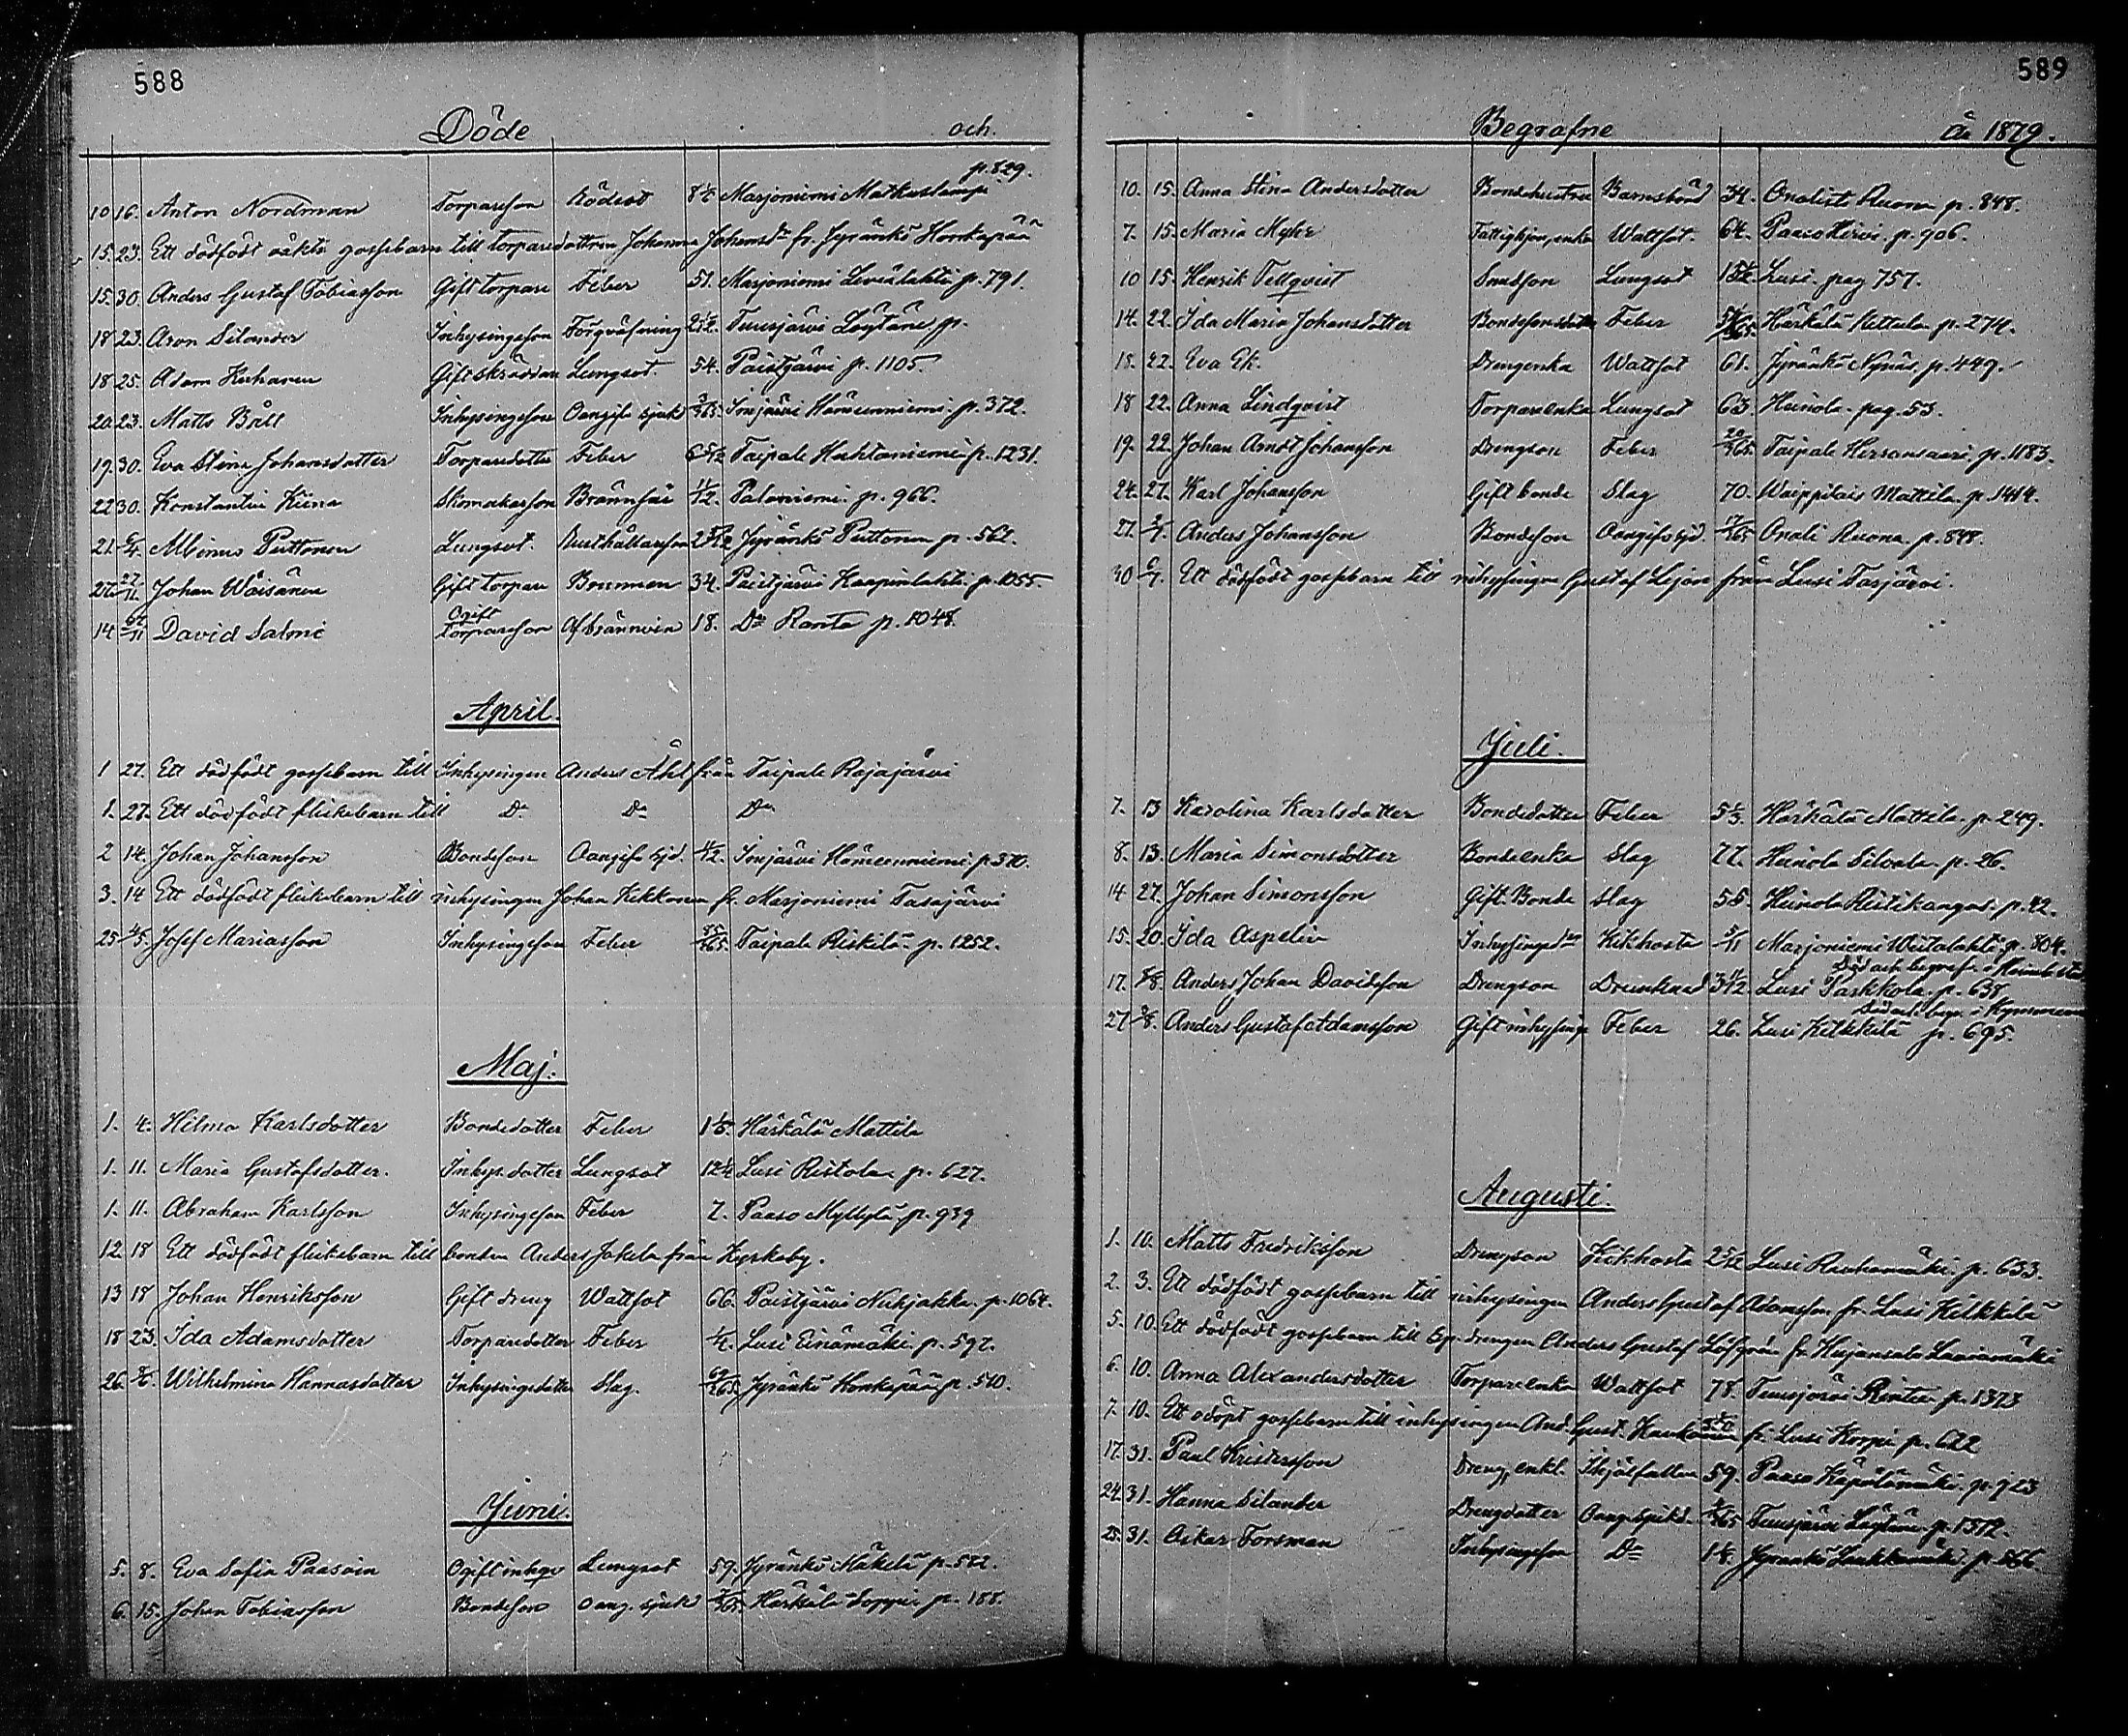 588
Döde och
p. 829.
10 16. Anton Nordman Torpareson Rödsot 8 1/2 Marjoniemi Matkuslampi
15. 23. Ett dödfödt oäkta gossebarn till torparedottren Johanna Johansdr fr. Jyränkö Honkapää
15. 30. Anders Gustaf Tobiasson Gift torpare Feber 51. Marjoniemi Leviälahti p. 791.
18 23. Aron Silander Inhysingeson Förgväfning Tuusjärvi Löytäne p.
18 25. Adam Kuharen Gift skräddare Lungsot. 54. Paistjärvi p. 1105.
20. 23. Matts Båll Inhysingeson Oangif. sjuk 3/365 Imjärvi Hämeenniemi p. 372.
19. 30. Eva Stina Johansdotter Torparedotter Feber 6 5/12 Taipale Huhtaniemi p. 1231.
22 30. Konstantin Kiuna Skomakareson Brännsår 11/12. Paloniemi p. 966.
21. 6/4. Albinus Puttonen Lungsot. Rusthållareson Jyränkö Puttonen p. 562.
27. Johan Wäisänen Gift torpare Brunnen 34. Paistjärvi Kaapinlahti p. 1055.
14 David Salmi Ogift Torpareson Af brännvin 18. Do Ranta p. 1048.
April.
1 27. Ett dödfödt gossebarn till Inhysingen Anders Åhl från Taipale Rajajärvi
1. 27. Ett dödfödt flickebarn till Do Do Do
2 14. Johan Johansson Bondeson Oangif. sjd. Imjärvi Hämeenniemi p. 370.
3. 14 Ett dödfödt flickebarn till inhysingen Johan Kekkonen fr. Marjoniemi Tasajärvi
25 4/5. Josef Mariasson Inhysingeson Feber 85/365. Taipale Riskilä p. 1252.
Maj.
1. 4. Hilma Karlsdotter Bondedotter Feber Härkälä Mattila
1. 11. Maria Gustafsdotter. Inhys. dotter Lungsot 12 1/4 Lusi Ristola p. 627.
1. 11. Abraham Karlsson Inhysingeson Feber 7. Paaso Myllylä p. 939
12. 18 Ett dödfödt flickebarn till bonden Anders Jakola från Kyrkoby.
13 18 Johan Henriksson Gift dreng Wattsot 66. Paistjärvi Nuhjakka p. 1064.
18 23. Ida Adamsdotter Torparedotter Feber Lusi Einämäki p. 592.
26. 8/6. Wilhelmina Hannasdotter Inhysingedotter Slag. Jyränkö Honkapää p. 510.
Juni.
5. 8. Eva Sofia Paasoin Ogift inhys Lungsot 59. Jyränkö Mäkelä p. 572.
6. 15. Johan Tobiasson Bondeson oang. sjuk Härkälä Soppi p. 188.
589
Begrafne År 1879.
10. 15. Anna Stina Andersdotter Bondehustru Barnsbörd 34. Onalist Ruona p. 848.
7. 15. Maria Myhr Fattighjon, enka Wattsot. 64. Paaso Hirvi. p. 906.
10 15. Henrik Tellqvist Smedson Lungsot Lusi. pag 757.
14. 22. Ida Maria Johansdotter Bondesonsdotter Feber Härkälä Mettula p. 274.
15. 22. Eva Ek. Drengenka Wattsot 61. Jyränkö Nynäs. p. 449.
18 22. Anna Lindqvist Torpareenka Lungsot 63. Heinola pag. 53.
19. 22. Johan Arndt Johansson Drengson Feber 20/365. Taipale Hirsansaari p. 1183.
24. 27. Karl Johansson Gift bonde Slag 70. Waippilais Mattila p. 1414.
27. Anders Johansson Bondeson Oangifv sjd. 17/365 Onali Ruona. p. 848.
30 6/7. Ett dödfödt gossebarn till inhysingen Gustaf Lejon från Lusi Tasjärvi.
Juli.
7. 13 Karolina Karlsdotter Bondedotter Feber Härkälä Mattila p. 249.
8. 13. Maria Simonsdotter Bondeenka Slag 77. Heinola Silvola p. 26.
14 27. Johan Simonsson Gift. Bonde Slag 58. Heinola Ristikangas. p. 42.
15. 20. Ida Aspelin Kikhosta 5/11 Marjoniemi Wiitalahti p. 804.
Död och begrf. i Heinola stad
17. Anders Johan Davidsson Drengson Drunknad Lusi Parkkola p. 638
Död och begr. i Kymmene
27 Anders Gustaf Adamsson Gift inhysing Feber 26. Lusi Kilkkilä p. 695.
Augusti.
1. 10. Matts Fredriksson Drengson Kikhosta Lusi Rauhamäki p. 633.
2. 3. Ett dödfödt gossebarn till inhysingen Anders Gustaf Adamsson fr. Lusi Kilkkilä
5. 10. Ett dödfödt gossebarn till drengen Anders Gustaf Löfgrén fr Hujansalo Laviamäki
6. 10. Anna Alexandersdotter Torpareenka Wattsot 78. Tuusjärvi Rinta p. 1373
7. 10. Ett odöpt gossebarn till inhysingen And. Gust. fr. Lusi Korpi p. 622
17. 31. Paul Kristersson Dreng, enkl. Ihjälfallen 59. Paaso Käpälämäki p. 923
24 31. Hanna Silander Drengdotter Tuusjärvi Löytäne p. 1372.
25. 31. Oskar Forsman Inhysingeson Do Jyränkö p. 566